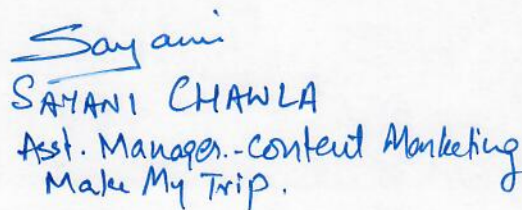 Sayani
SAYANI CHAWLA
Asst. Manager.-Content Marketing
Make My Trip.